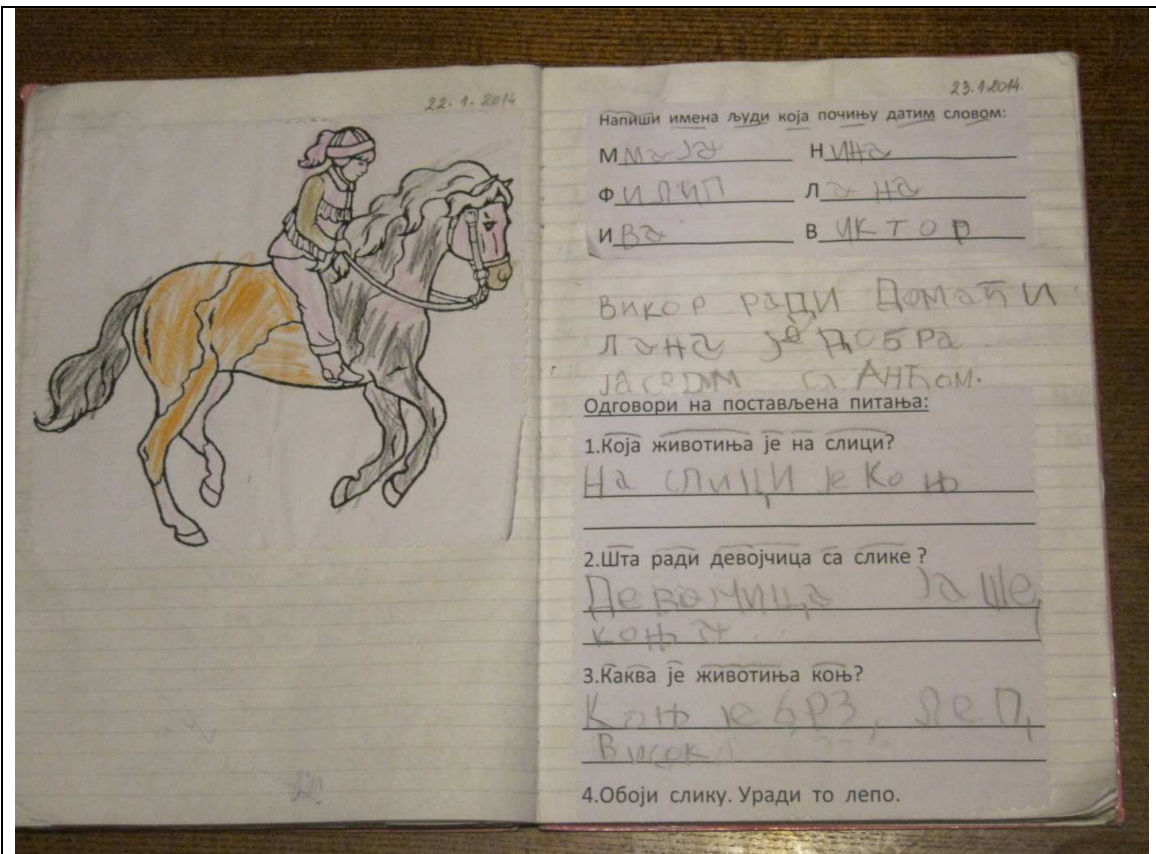 22. 1. 2014
23.1.2014
Напиши имена људи која почињу датим словом:
М маја Н ина
Ф илип Л ана
И ва В иктор
викор ради Домаћи
лана је добра
ја седим са Анђом.
Одговори на постављена питања:
1.Која животиња је на слици?
На слици је коњ
2.Шта ради девојчица са слике ?
Девојчица јаше
коња
3.Каква је животиња коњ?
Коњ је брз, леп,
висок
4.Обоји слику. Уради то лепо.